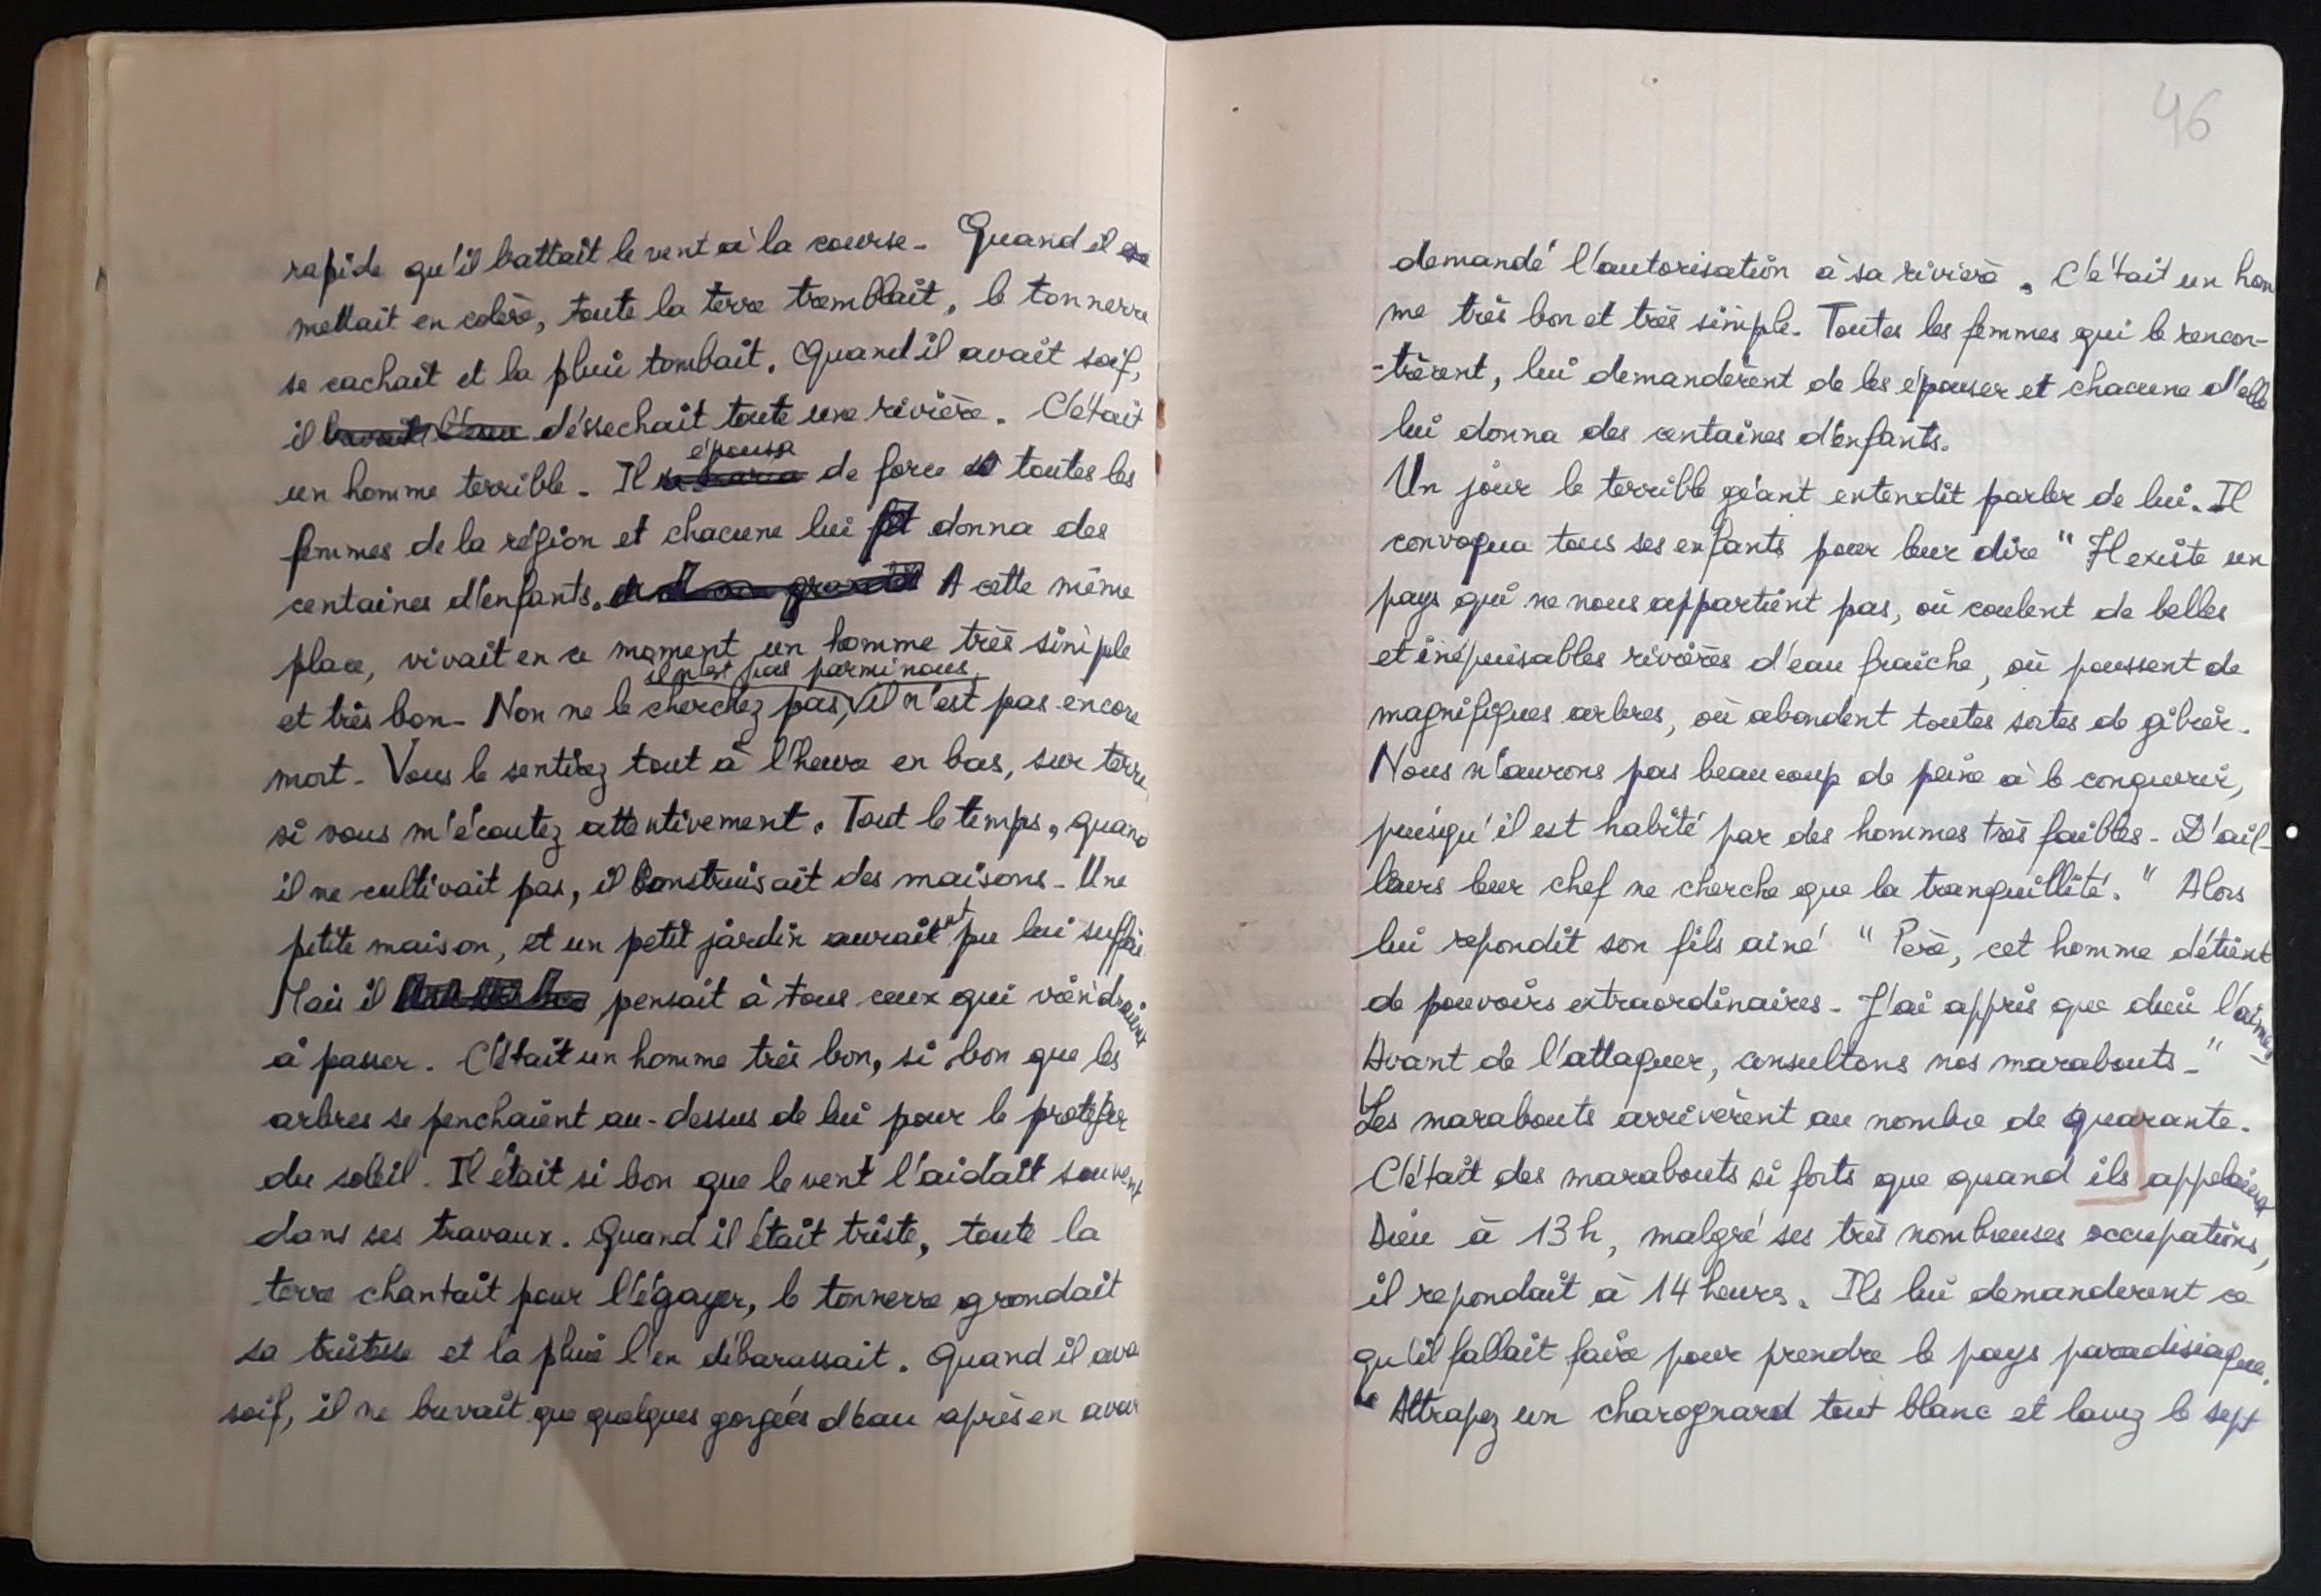 rapide qu'il battait le vent à la course. Quand il se
mettait en colère, toute la terre tremblait, le tonnerre
se cachait et la pluie tombait. Quand il avait soif,
il buvait l'eau déssechait toute une rivière. C'était
épousa
un homme terrible. Il de force toutes les
femmes de la région et chacune lui fit donna des
centaines d'enfants. A cette même
place, vivait en ce moment un homme très simple
il n'est pas parmi nous
et très bon. Non ne le cherchez pas, il n'est pas encore
mort. Vous le sentirez tout à l'heure en bas, sur terre,
si vous m'écoutez attentivement. Tout le temps, quand
il ne cultivait pas, il construisait des maisons. Une
petite maison, et un petit jardin aurait pu lui suffir
Mais il pensait à tous ceux qui viendraient
à passer. C'était un homme très bon, si bon que les
arbres se penchaient au-dessus de lui pour le proteger
du soleil. Il était si bon que le vent l'aidait souvent
dans ses travaux. Quand il était triste, toute la
terre chantait pour l'égayer, le tonnerre grondait
sa tristesse et la pluie l'en débarassait. Quand il avai
soif, il ne buvait que quelques gorgées d'eau après en avoir
46
demandé l'autorisation à sa rivière. C'était un hom
me très bon et très simple. Toutes les femmes qui le rencon-
-trèrent, lui demandèrent de les épouser et chacune d'elle
lui donna des centaines d'enfants.
Un jour le terrible géant entendit parler de lui. Il
convoqua tous ses enfants pour leur dire "Il existe un
pays qui ne nous appartient pas, où coulent de belles
et inépuisables rivières d'eau fraiche, où poussent de
magnifiques arbres, où abondent toutes sortes de gibier.
Nous n'aurons pas beaucoup de peine à le conquerir,
puisqu'il est habité par des hommes très faibles. D'ail-
leurs leur chef ne cherche que la tranquillité." Alors
lui repondit son fils ainé "Père, cet homme détient
de pouvoirs extraordinaires. J'ai appris que dieu l'aime
Avant de l'attaquer, consultons nos marabouts."
Les marabouts arrivèrent au nombre de quarante.
C'était des marabouts si forts que quand ils appelaient
Dieu à 13h, malgré ses très nombreuses occupations,
il repondait à 14 heures. Ils lui demanderent ce
qu'il fallait faire pour prendre le pays paradisiaque.
" Attrapez un charognard tout blanc et lavez le sept